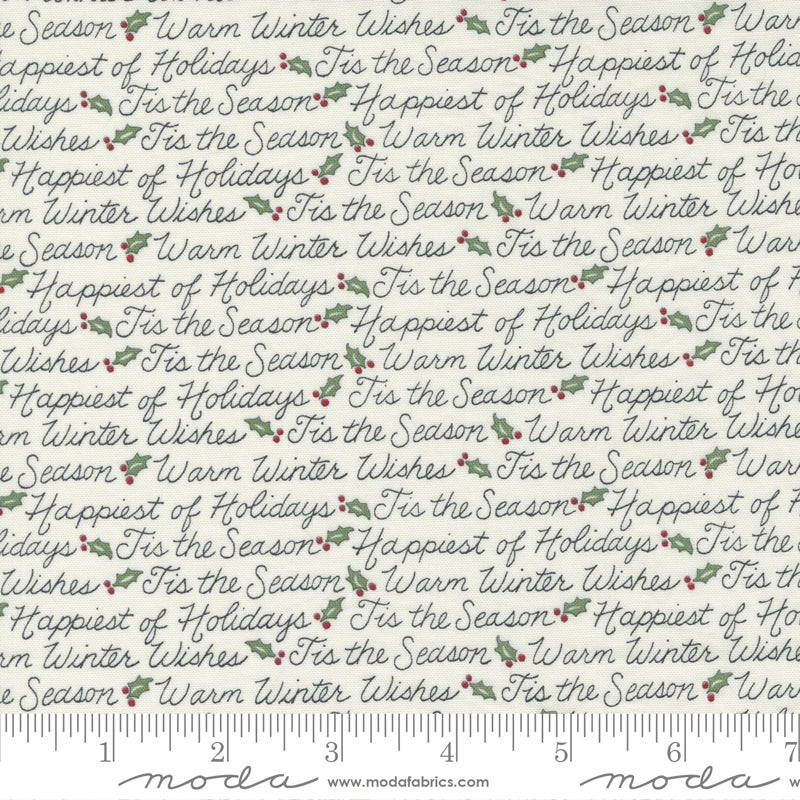 e Season Warm Winter Wishes Tis the Season War
appiest of Holidays Tis the Season Happiest of Holidays
lidays Tis the Season Happiest of Holidays Tis the
Wishes Tis the Season Warm Winter Wishes Tis th
Happiest of Holidays Tis the Season Happiest of Ho
rm Winter Wishes Tis the Season Warm Winter Wishe
e Season Warm Winter Wishes Tis the Season War
Happiest of Holidays Tis the Season Happiest of H
lidays Tis the Season Happiest of Holidays Tis the
Wishes Tis the Season Warm Winter Wishes Tis th
Happiest of Holidays Tis the Season Happiest of Ho
rm Winter Wishes Tis the Season Warm Winter Wishe
e Season Warm Winter Wishes Tis the Season War
Happiest of Holidays Tis the Season Happiest of H
lidays Tis the Season Happiest of Holidays Tis the
Wishes Tis the Season Warm Winter Wishes Tis th
Happiest of Holidays Tis the Season Happiest of Ho
rm Winter Wishes Tis the Season Warm Winter Wishe
e Season Warm Winter Wishes Tis the Season War
1 2 3 4 5 6 7
moda www.modafabrics.com moda w